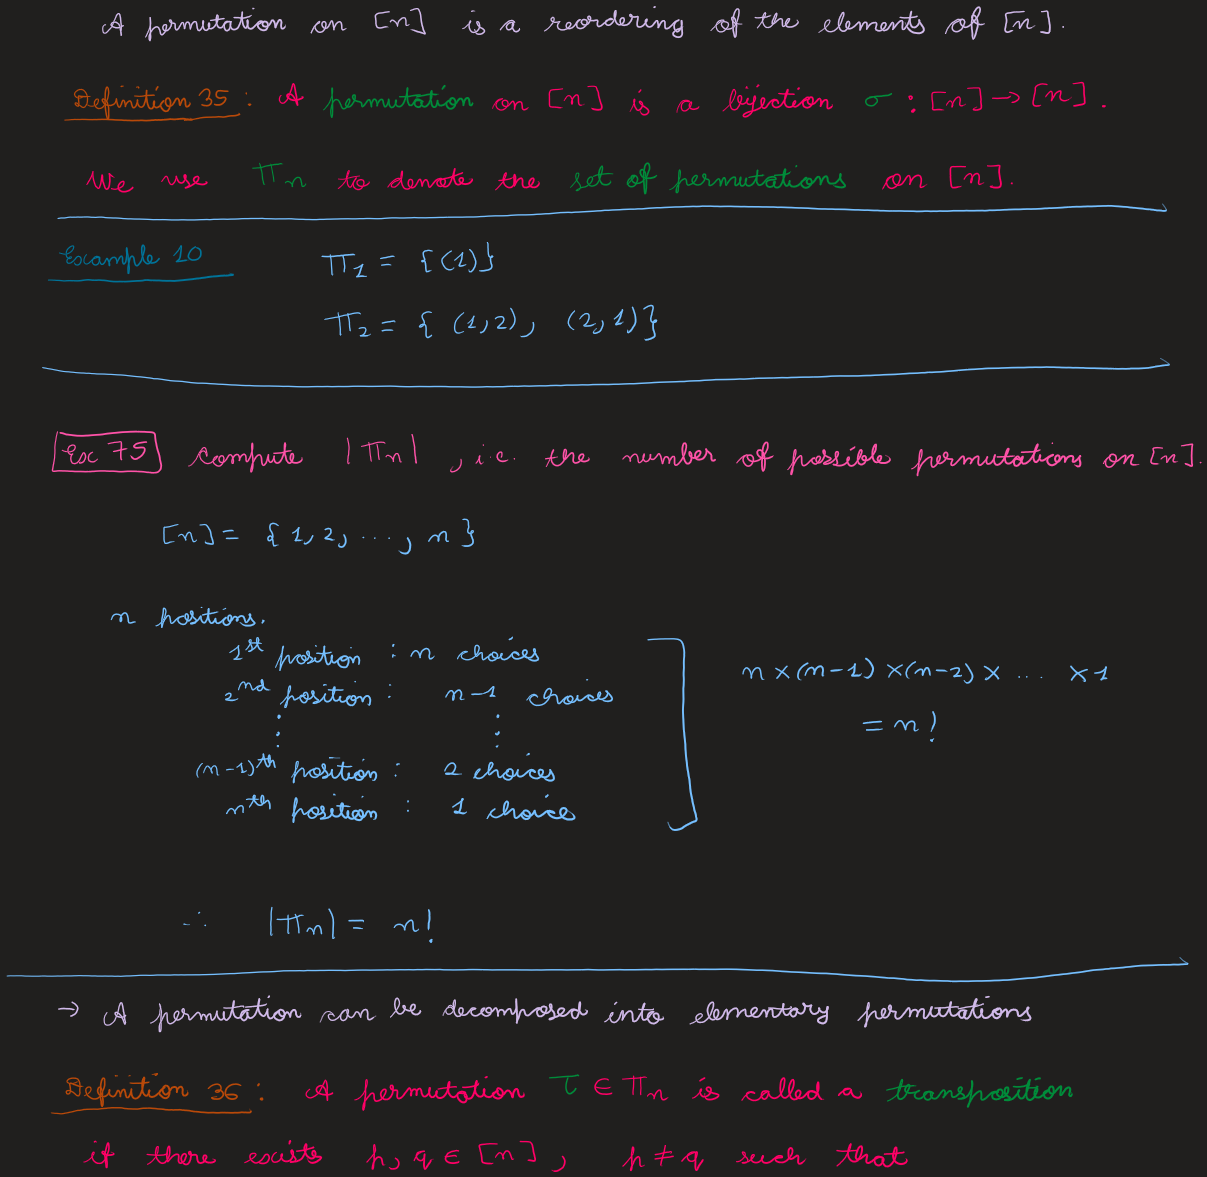 A permutation on [n] is a reordering of the elements of [n].
Definition 35 : A permutation on [n] is a bijection σ : [n] → [n].
We use Π_n to denote the set of permutations on [n].
Example 10 Π_1 = {(1)}
Π_2 = { (1,2), (2,1)}
Exc 75 Compute |Π_n| , i.e. the number of possible permutations on [n].
[n] = { 1, 2, ..., n }
n positions.
1st position : n choices
2nd position : n-1 choices
⋮ ⋮
(n-1)th position : 2 choices
nth position : 1 choice
n × (n-1) × (n-2) × ... × 1
= n!
∴ |Π_n| = n!
→ A permutation can be decomposed into elementary permutations
Definition 36 : A permutation τ ∈ Π_n is called a transposition
if there exists p, q ∈ [n], p ≠ q such that